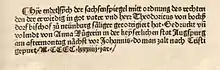 Hye endet sich der sachsenspiegel mit ordnung des rechten
den der erwirdig in got vater und herr Theodoricus von bocks
dorf bischof zů neünburg säliger gecorrigiert hat. Gedruckt vň
volendt von Anna Rügerin in der keyserlichen stat Augspurg
am aftermontag nächst vor Johannis. do man zalt nach Cristi
gepurt.